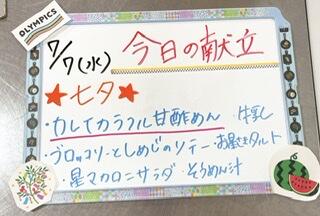 OLYMPICS
7/7(水) 今日の献立
★七夕★
・カレイカラフル甘酢めん ・牛乳
・ブロッコリーとしめじのソテー ・お星さまタルト
・星マカロニサラダ ・そうめん汁